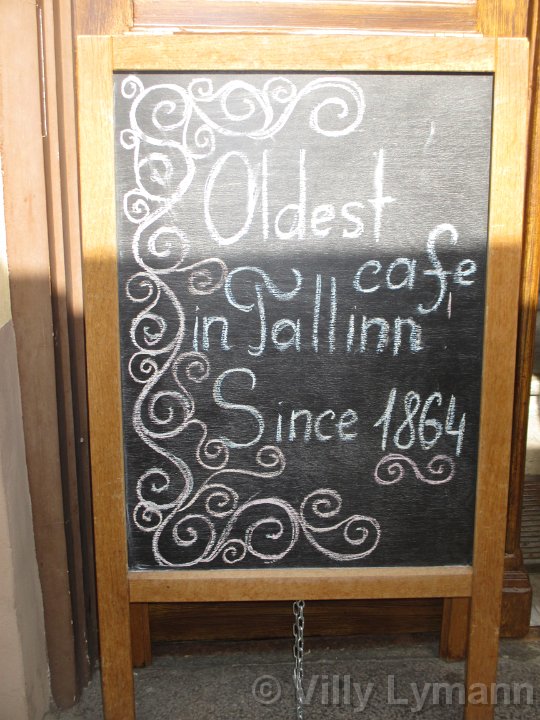 Oldest
cafe
in Tallinn
Since 1864
© Villy Lymann